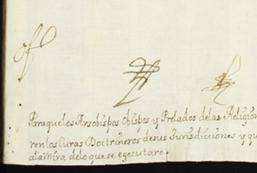 Paraque los Arzobispos Obispos y Prelados delas Religion
ren los Curas Doctrineros desus Jurisdicciones y que
ala mira delo que se egecutare.